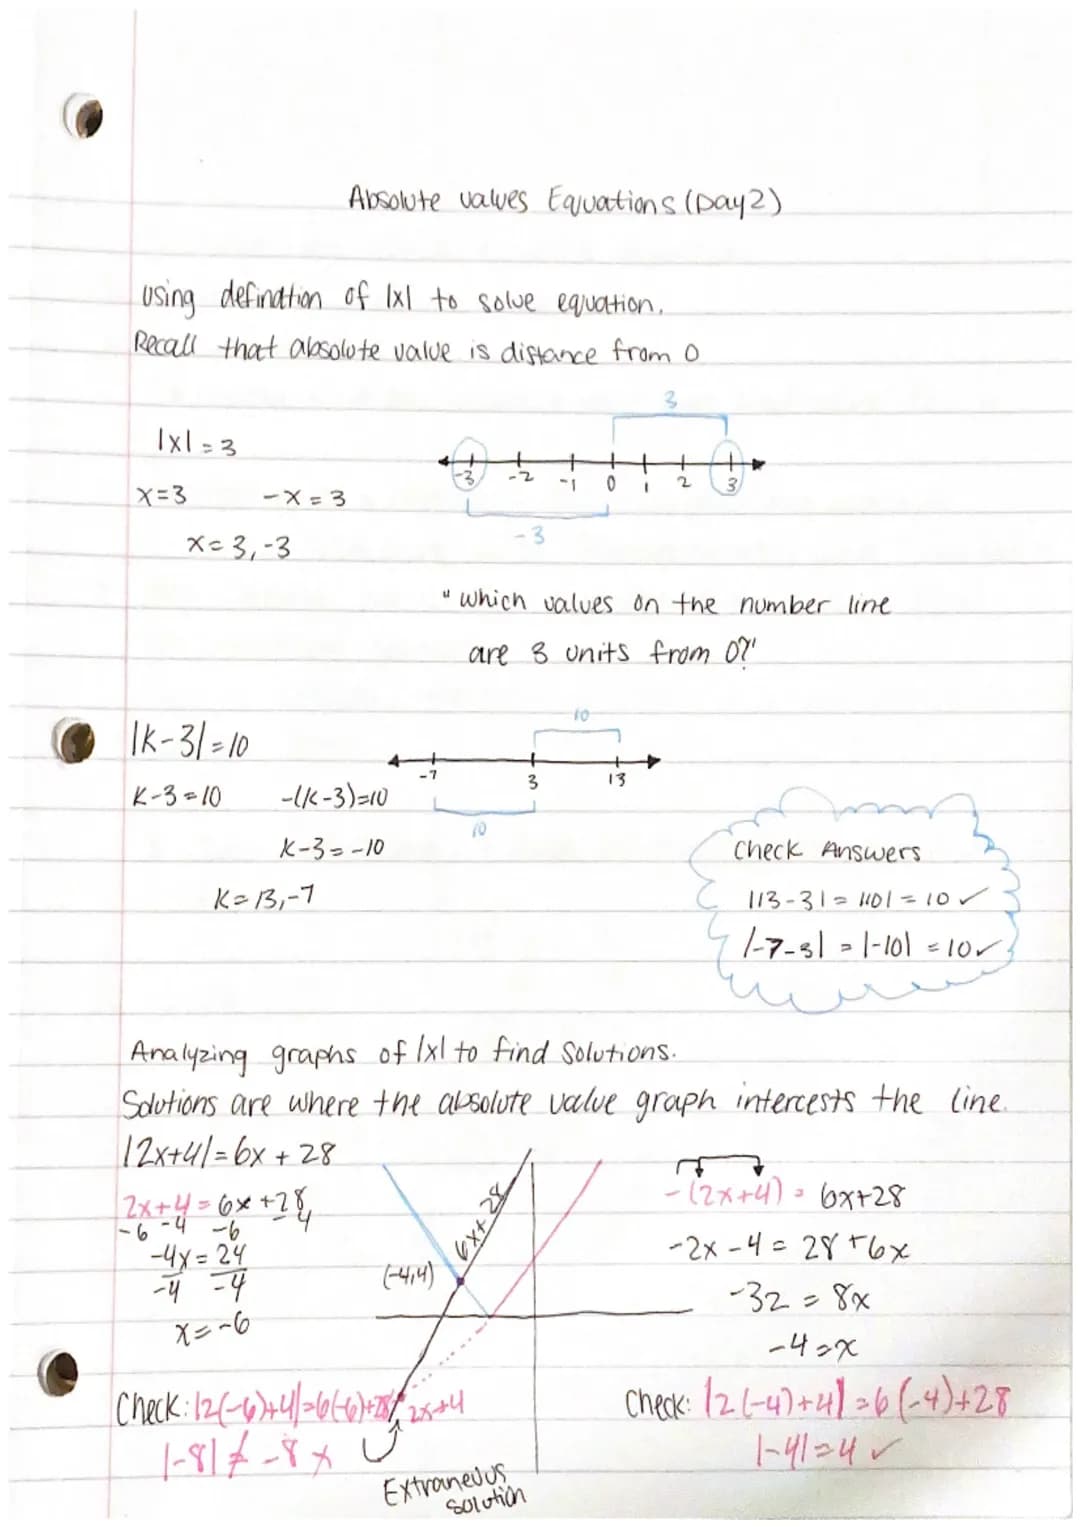 Absolute values Equations (Day 2)
Using defination of |x| to solve equation.
Recall that absolute value is distance from 0
3
|x| = 3
-3 -2 -1 0 1 2 3
x=3 -x = 3
-3
x= 3,-3
"which values on the number line
are 3 units from 0?"
10
|K-3| = 10
-7 3 13
K-3=10 -(K-3)=10
10
K-3=-10
K= 13,-7
Check Answers
|13-3| = |10| = 10 ✓
|-7-3| = |-10| = 10 ✓
Analyzing graphs of |x| to find solutions.
Solutions are where the absolute value graph intercests the line.
|2x+4| = 6x + 28
2x+4 = 6x +28
-6 -4 -6 -4
-4x = 24
-4 -4
x=-6
Check: |2(-6)+4|=6(-6)+28
|-8| ≠ -8 x
6x+28
(-4,4)
2x+4
Extraneous
solution
-(2x+4) = 6x+28
-2x-4 = 28+6x
-32 = 8x
-4=x
Check: |2(-4)+4| = 6(-4)+28
|-4|=4 ✓